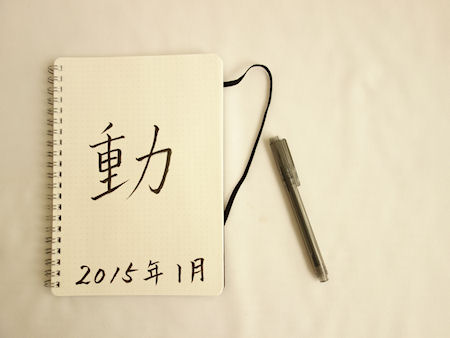 動
2015年1月